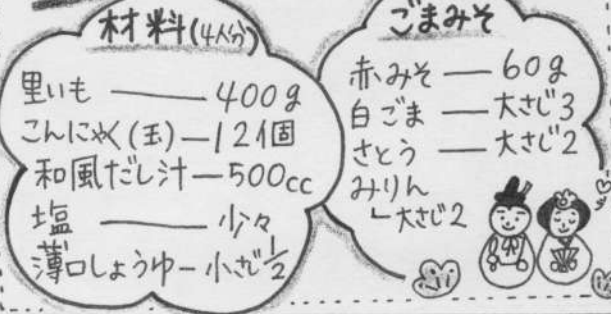 材料(4人分)
里いも ― 400g
こんにゃく(玉)―12個
和風だし汁―500cc
塩 ― 少々
薄口しょうゆ―小さじ1/2
ごまみそ
赤みそ ― 60g
白ごま ― 大さじ3
さとう ― 大さじ2
みりん
└大さじ2